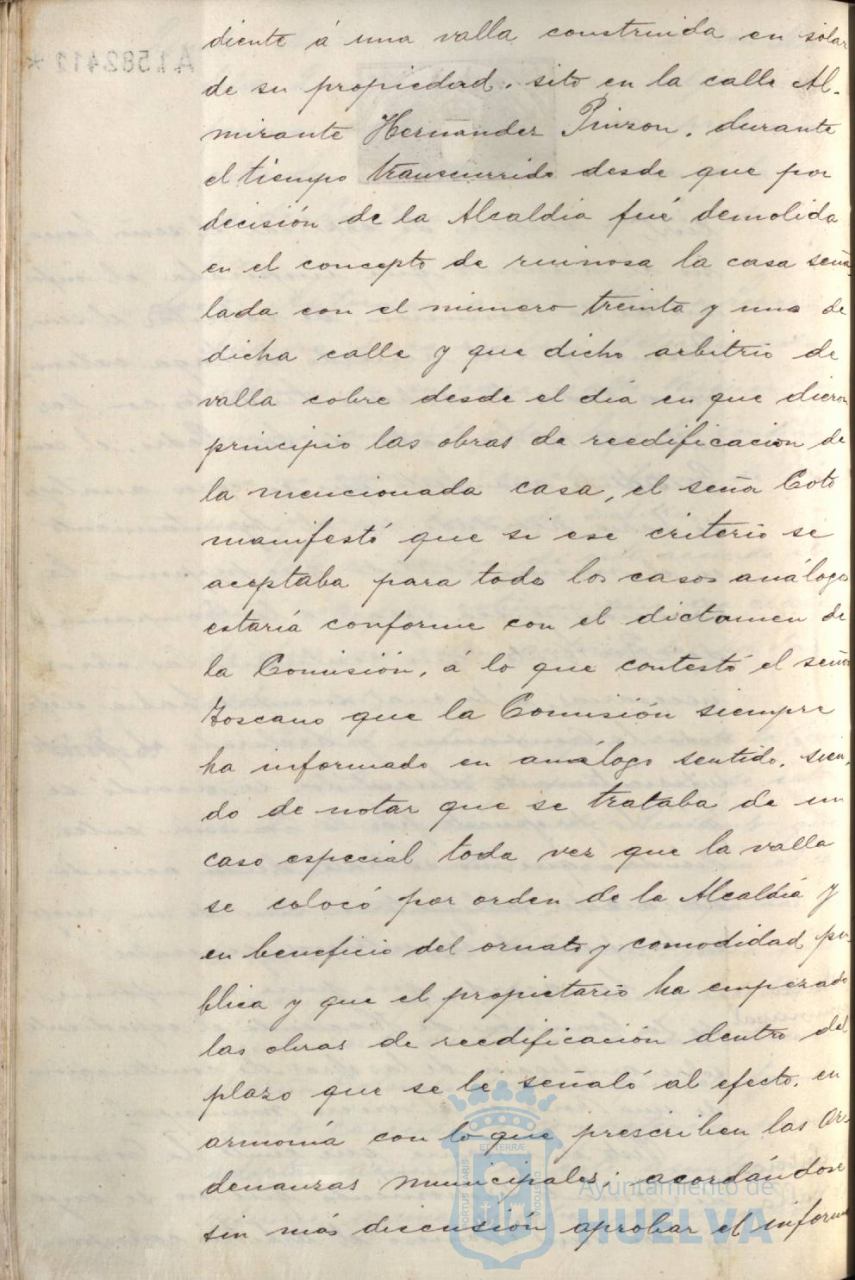 diente á una valla construida en solar
de su propiedad, sito en la calle Al-
mirante Hernández Pinzon, durante
el tiempo transcurrido desde que por
decisión de la Alcaldía fué demolida
en el concepto de ruinosa la casa seña
lada con el número treinta y uno de
dicha calle y que dicho arbitrio de
valla cobre desde el día en que dieron
principio las obras de reedificacion de
la mencionada casa, el señor Coto
manifestó que si ese criterio se
aceptaba para todo los casos análogo
estaría conforme con el dictamen de
la Comisión, á lo que contestó el señor
Toscano que la Comisión siempre
ha informado en análogo sentido, sien-
do de notar que se trataba de un
caso especial toda vez que la valla
se colocó por orden de la Alcaldía y
en beneficio del ornato y comodidad pú-
blica y que el propietario ha empezado
las obras de reedificación dentro del
plazo que se le señaló al efecto, en
armonía con lo que prescriben las Or-
denanzas municipales; acordándose
sin más discusión aprobar el informe
A1582411*
PORTUS MARIS
ET TERRÆ
CUSTODIA
Ayuntamiento de
HUELVA